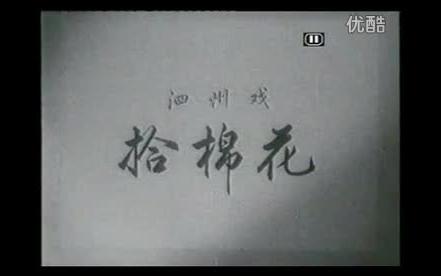 优酷
泗州戏
拾棉花